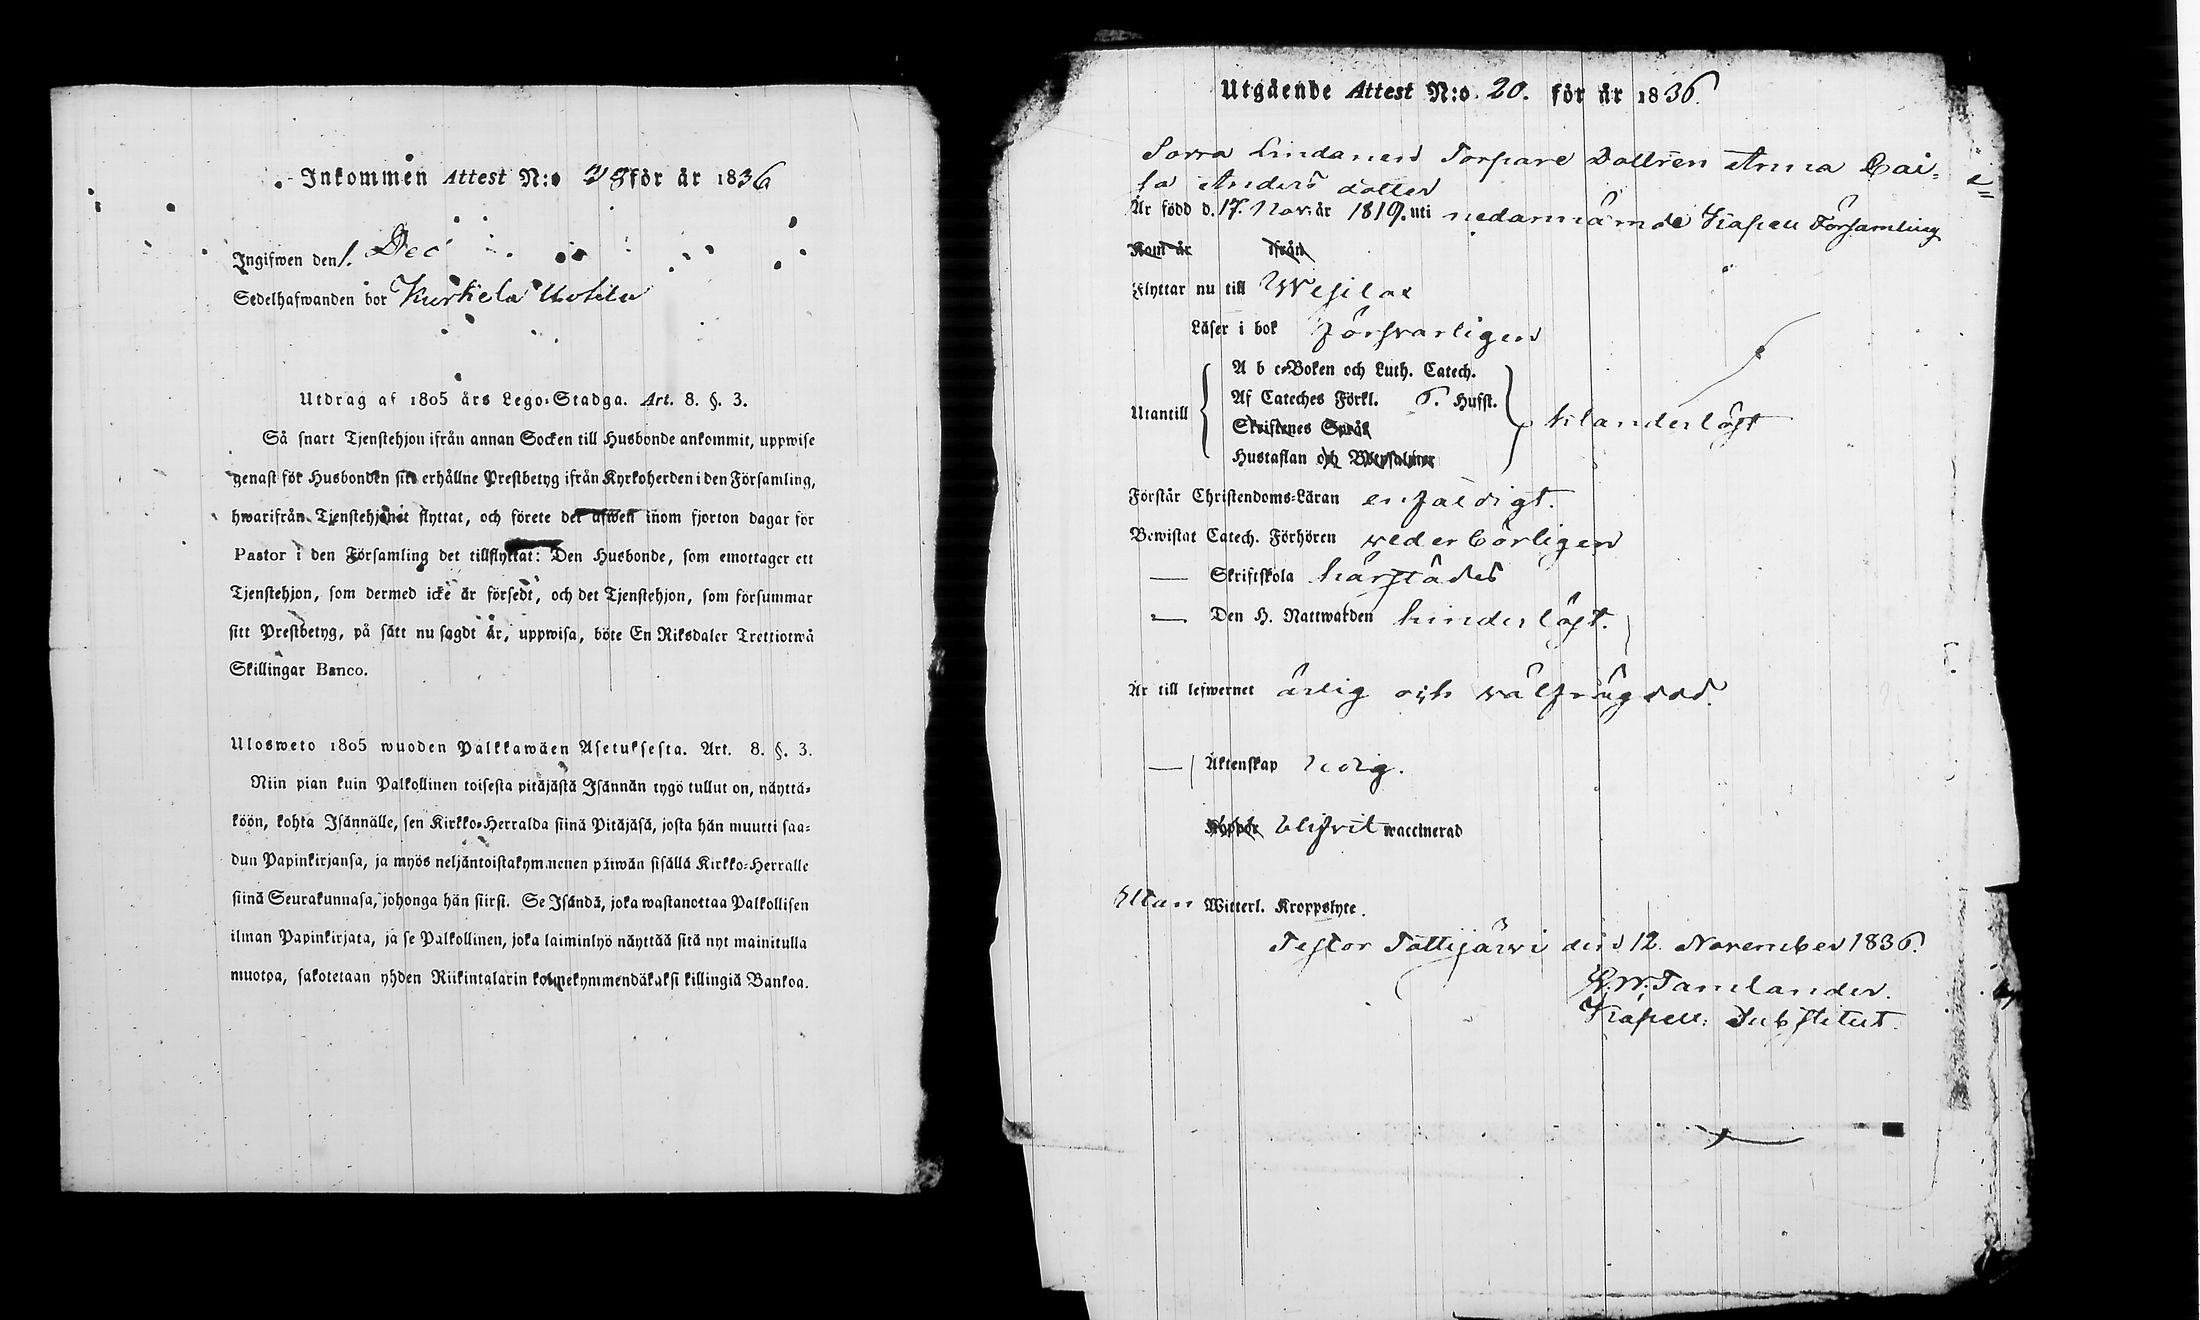 Inkommen Attest N:o 28 för år 1836
Ingifwen den 1. Dec
Sedelhafwanden bor Kurkela Uotila
Utdrag af 1805 års Lego-Stadga. Art. 8. §. 3.
Så snart Tjenstehjon ifrån annan Socken till Husbonde ankommit, uppwise
genast för Husbonden sitt erhållne Prestbetyg ifrån Kyrkoherden i den Församling,
hwarifrån Tjenstehjonet flyttat, och förete det äfwen inom fjorton dagar för
Pastor i den Församling det tillflyttat: Den Husbonde, som emottager ett
Tjenstehjon, som dermed icke är försedt, och det Tjenstehjon, som försummar
sitt Prestbetyg, på sätt nu sagdt är, uppwisa, böte En Riksdaler Trettiotwå
Skillingar Banco.
Ulosweto 1805 wuoden Palkkawäen Asetuksesta. Art. 8. §. 3.
Niin pian kuin Palkollinen toisesta pitäjästä Isännän tygö tullut on, näyttä-
köön, kohta Isännälle, sen Kirkko-Herralda siinä Pitäjäsä, josta hän muutti saa-
dun Papinkirjansa, ja myös neljäntoistakymmenen päiwän sisällä Kirkko-Herralle
siinä Seurakunnasa, johonga hän siirsi. Se Isändä, joka wastanottaa Palkollisen
ilman Papinkirjata, ja se Palkollinen, joka laiminlyö näyttää sitä nyt mainitulla
muotoa, sakotetaan yhden Riikintalarin kolmekymmendäkaksi killingiä Bankoa.
Utgående Attest N:o 20. för år 1836.
Sorra Lindanen Torpare Dottren Anna Cai-
sa Anders dotter
Är född d. 17. Nov. år 1819. uti nedannämnde Kapell Församling
Kom år ifrån
Flyttar nu till Wesilax
Läser i bok försvarligen
A b c-Boken och Luth. Catech.
Af Cateches Förkl. 6. Hufst.
Utantill klanderlöst
Skriftenes Språk
Hustaflan och Botpsalmer
Förstår Christendoms-Läran enfaldigt.
Bewistat Catech. Förhören wederbörligen
— Skriftskola härstädes
— Den H. Nattwarden hinderlöst.
Är till lefwernet ärlig och wälfrägdad.
— Äktenskap ledig.
Koppor blifvit waccinerad
Utan Witterl. Kroppslyte.
Testor Tottijärwi den 12. November 1836.
G. W. Tamlander.
Kapell. Substitut.